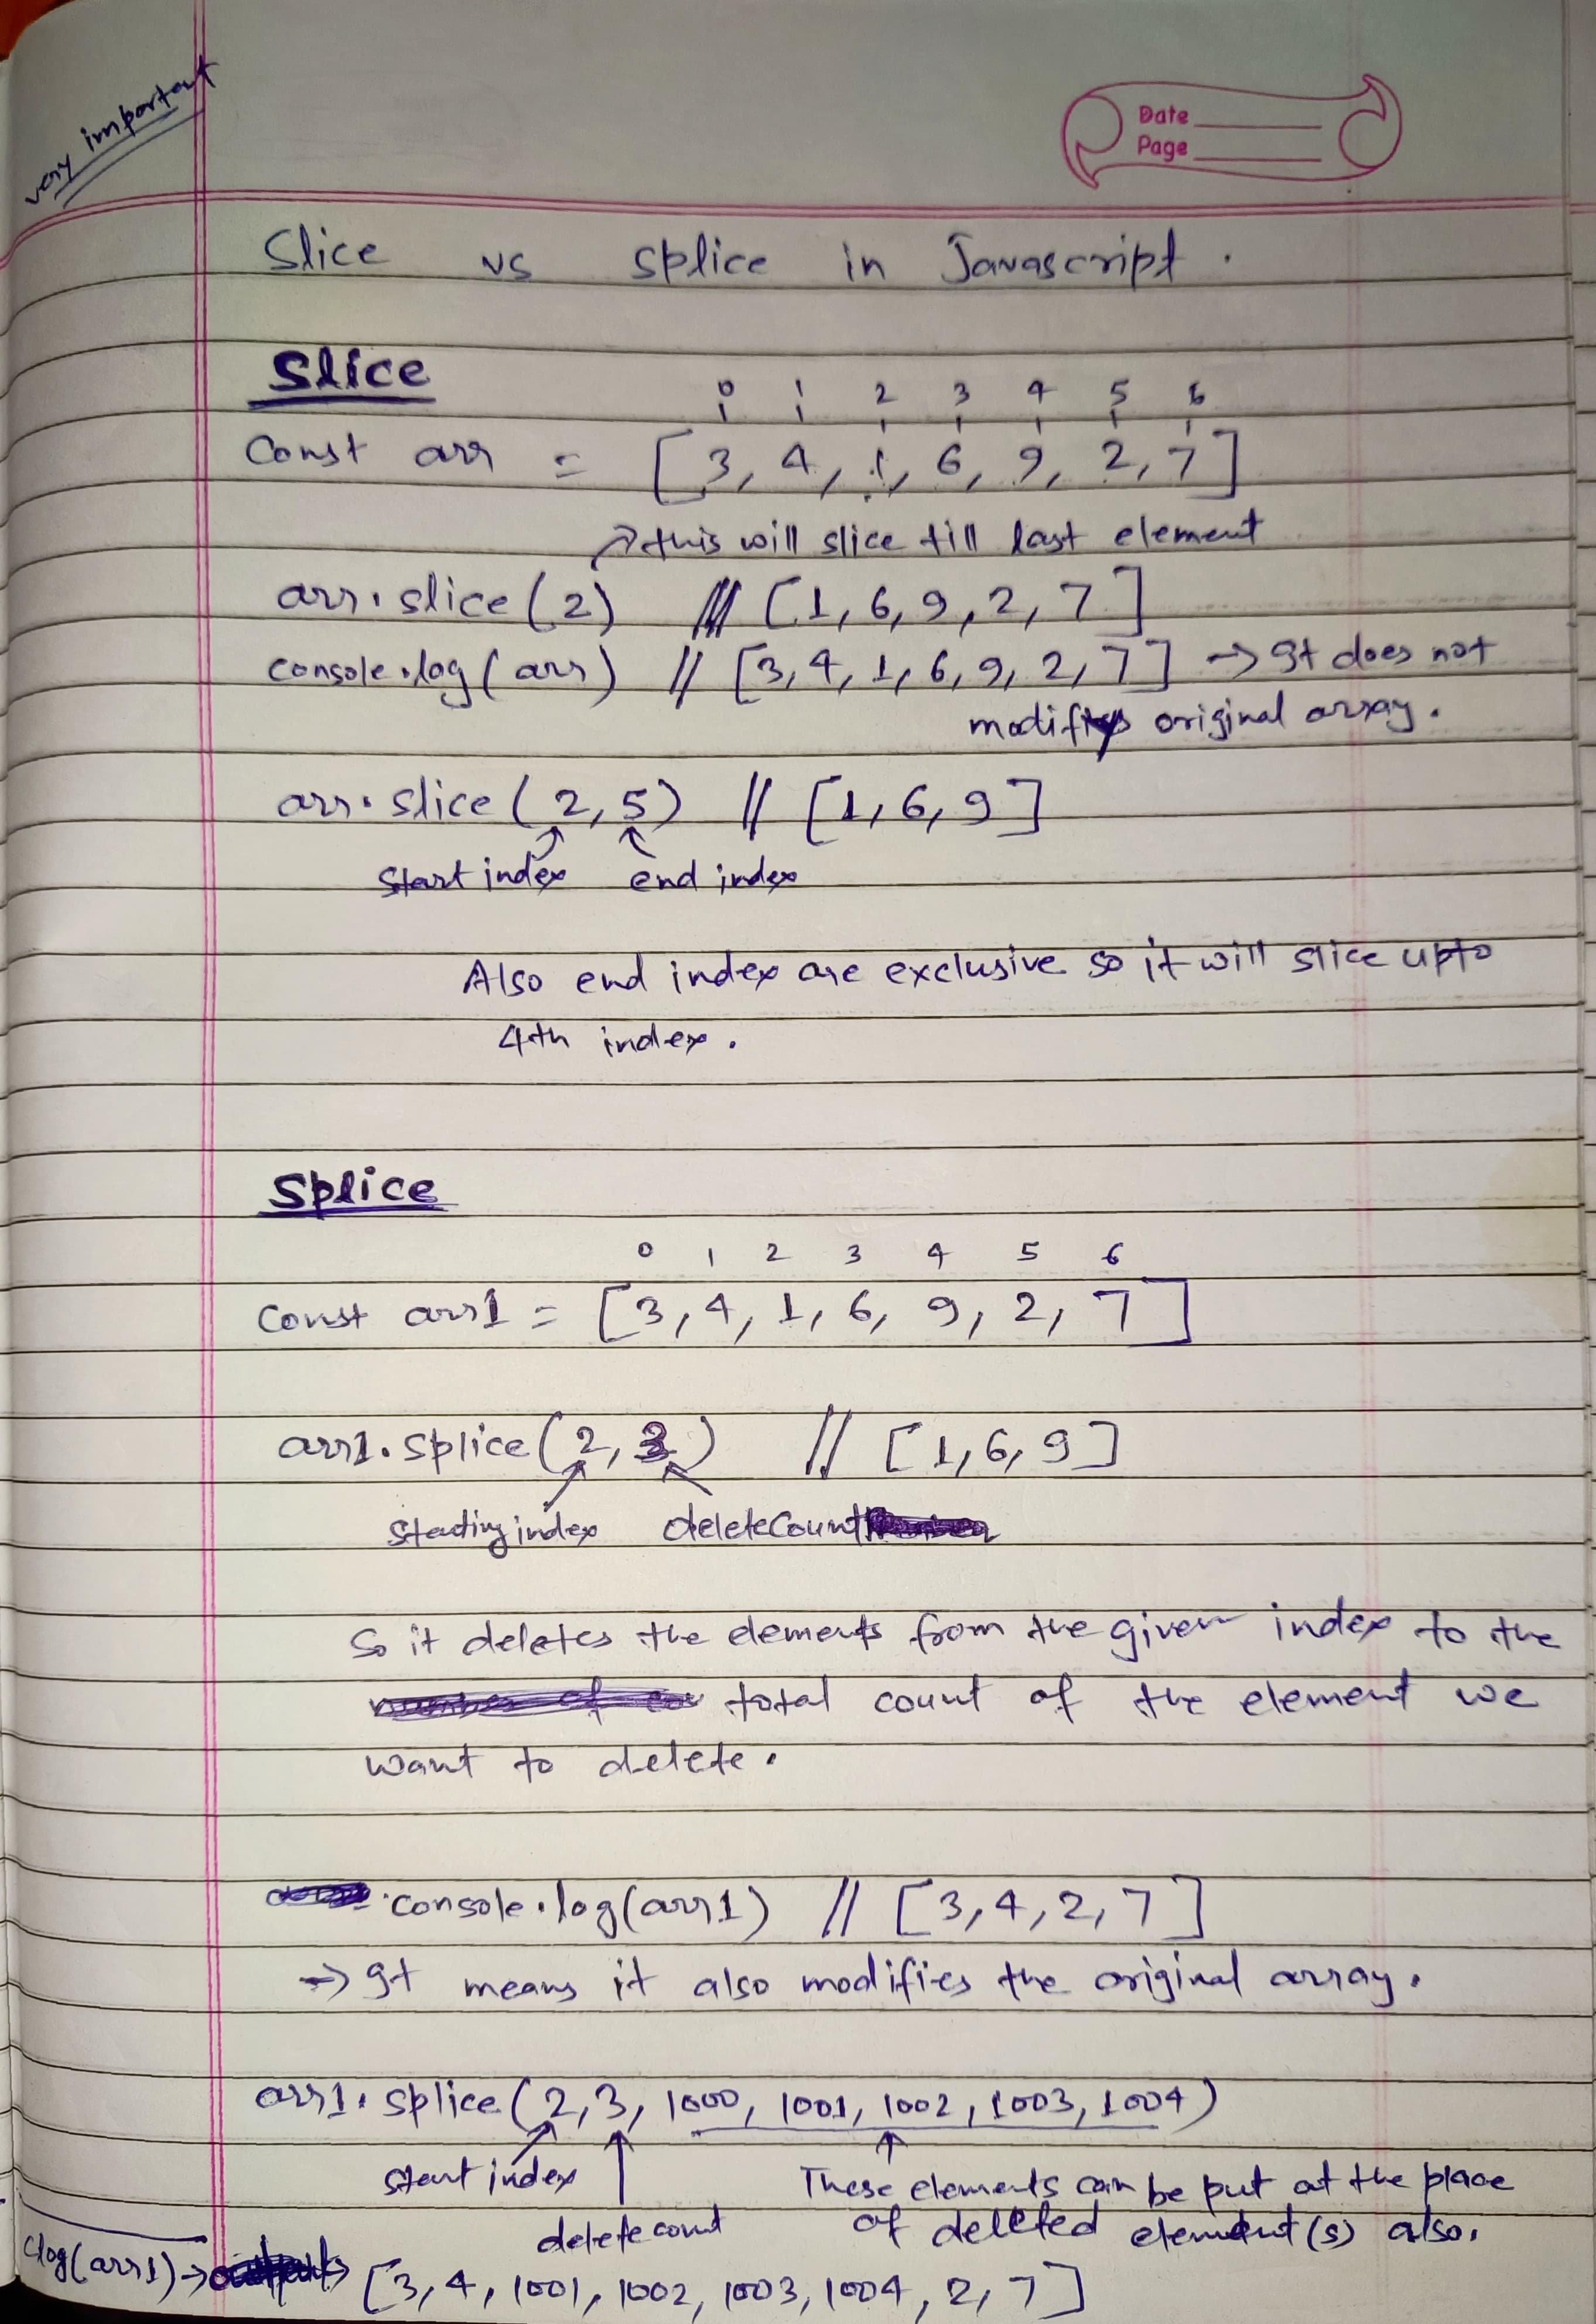 very important
Date
Page
Slice vs splice in Javascript.
Slice
0 1 2 3 4 5 6
Const arr = [3, 4, 1, 6, 9, 2, 7]
→ this will slice till last element
arr.slice(2) /// [1, 6, 9, 2, 7]
console.log(arr) // [3, 4, 1, 6, 9, 2, 7] → It does not
modify original array.
arr.slice(2, 5) // [1, 6, 9]
Start index end index
Also end index are exclusive so it will slice upto
4th index.
Splice
0 1 2 3 4 5 6
Const arr1 = [3, 4, 1, 6, 9, 2, 7]
arr1.splice(2, 3) // [1, 6, 9]
Starting index deleteCount
So it deletes the elements from the given index to the
total count of the element we
want to delete.
console.log(arr1) // [3, 4, 2, 7]
→ It means it also modifies the original array.
arr1.splice(2, 3, 1000, 1001, 1002, 1003, 1004)
start index
These elements can be put at the place
delete count
of deleted element(s) also.
clog(arr1) → [3, 4, 1001, 1002, 1003, 1004, 2, 7]